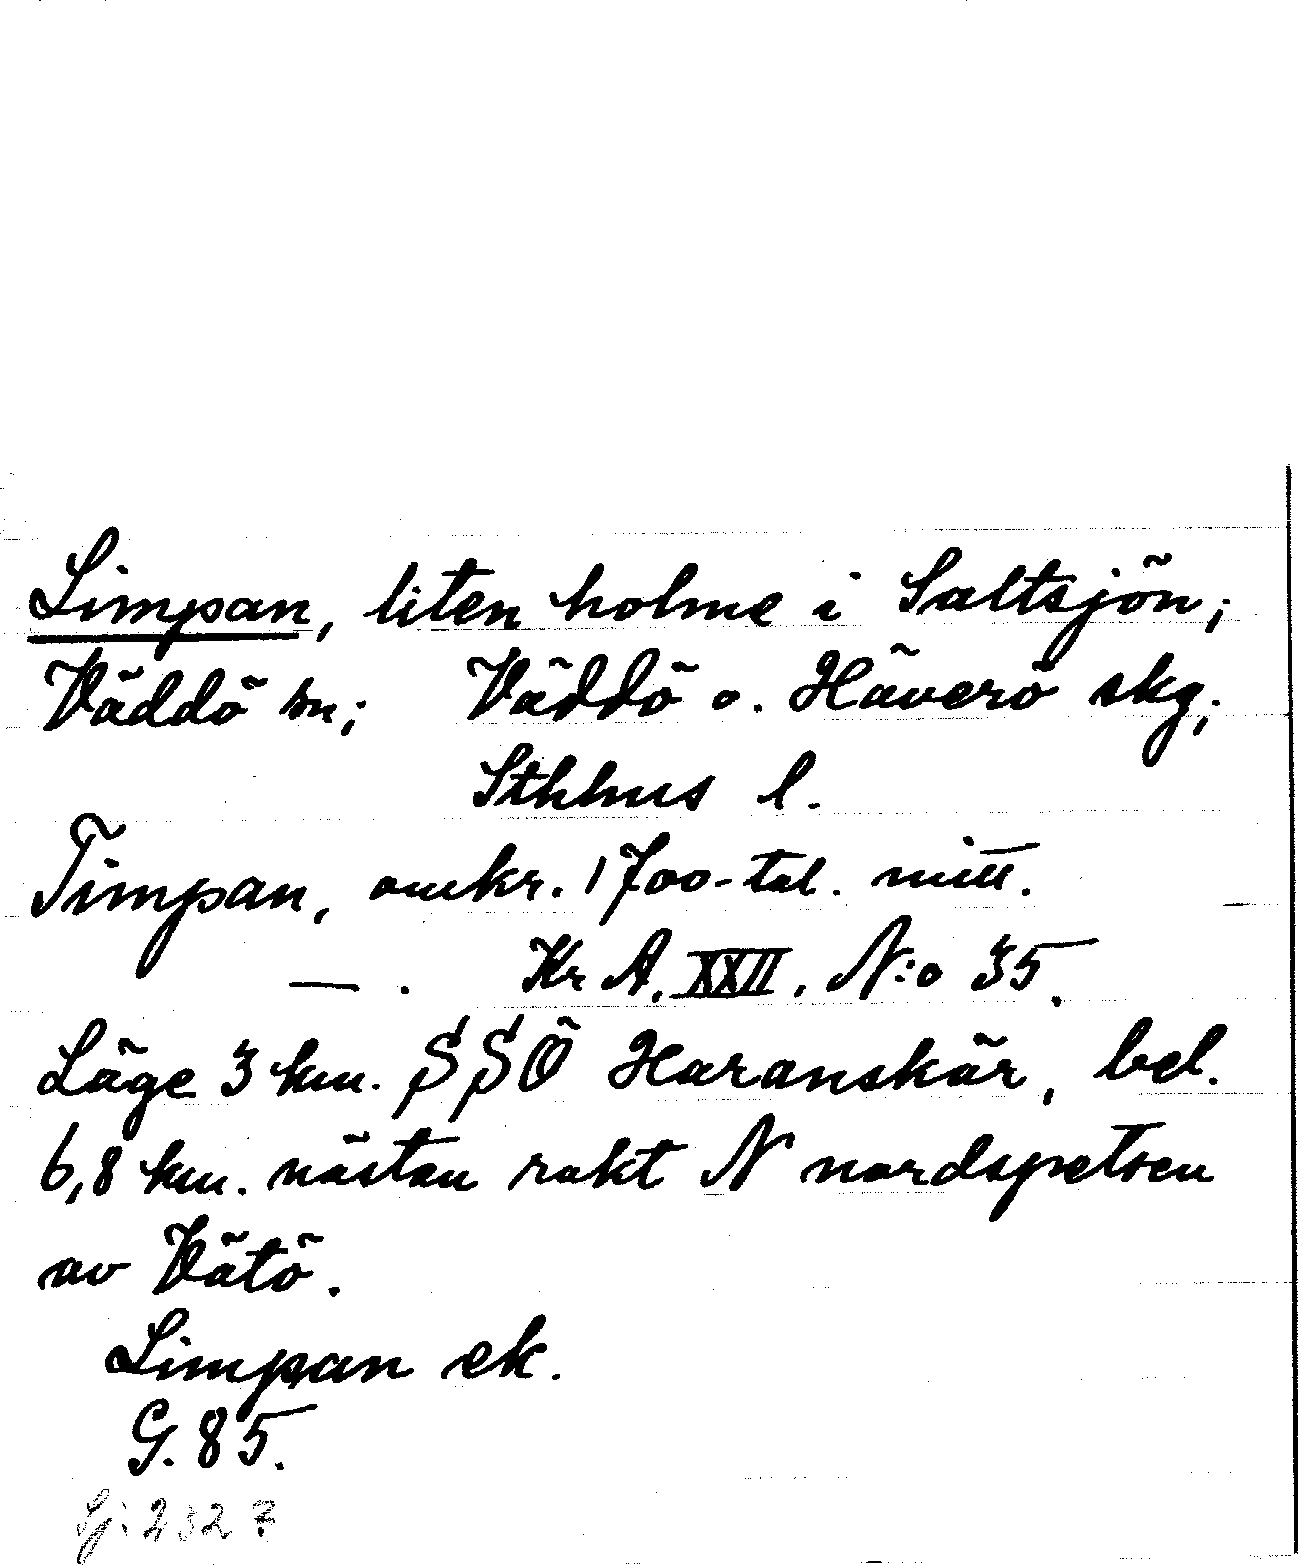 Limpan, liten holme i Saltsjön;
Väddö sn; Väddö o. Häverö skg;
Sthlms l.
Timpan, omkr. 1700-tal. mitt.
— . Kr A. XXII. N:o 35.
Läge 3 km. SSÖ Haranskär, bel.
6,8 km. nästan rakt N nordspetsen
av Vätö.
Limpan ek.
G. 85.
Sj: 2327